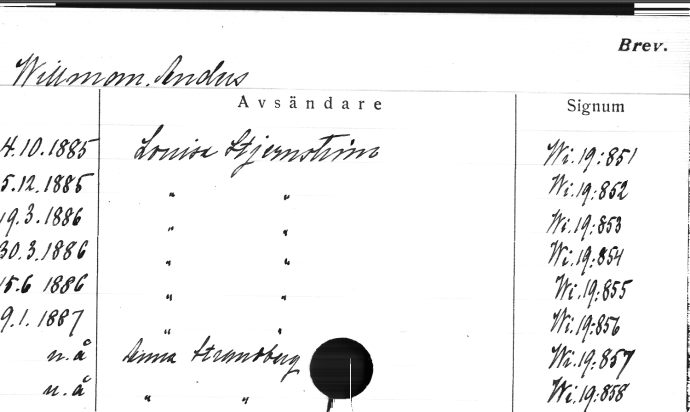 Brev.
Willman. Anders
Avsändare Signum
4.10.1885 Louisa Stjernström Wi.19:851
5.12.1885 " " Wi.19:852
19.3.1886 " " Wi.19:853
30.3.1886 " " Wi.19:854
15.6 1886 " " Wi.19:855
9.1.1887 " " Wi.19:856
n.å Anna Strandberg Wi.19:857
n.å " " Wi.19:858